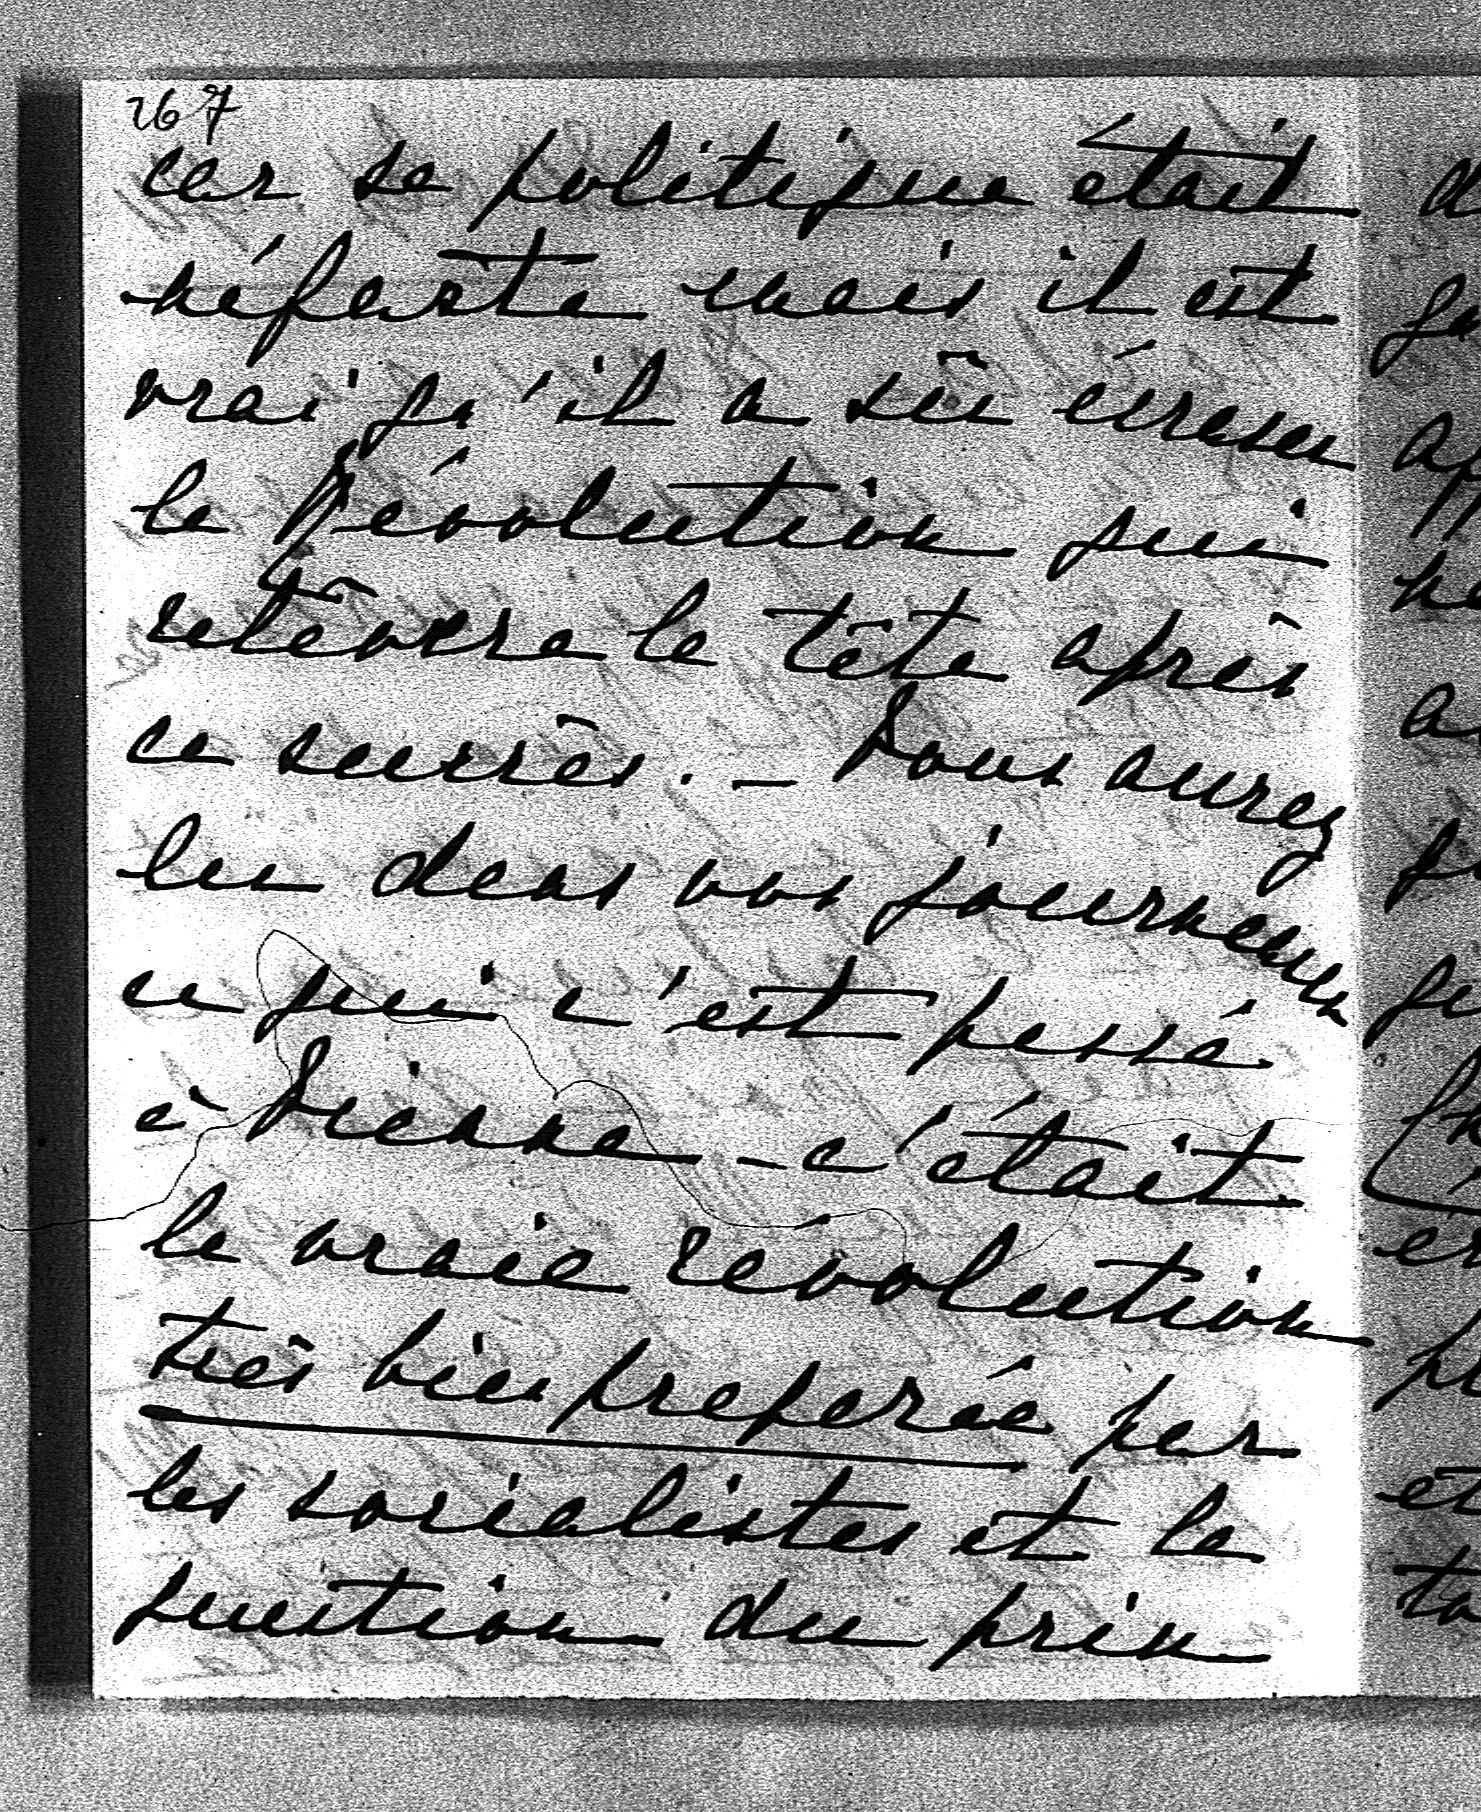 267
car sa politique était
néfaste mais il est
vrai qu'il a sû écraser
la Révolution qui
relèvera la tête après
ce succès. — Vous aurez
lu dans vos journaux
ce qui c'est passé
à Vienne — c'était
la vraie révolution
très bien preparée par
les socialistes et la
question du prix